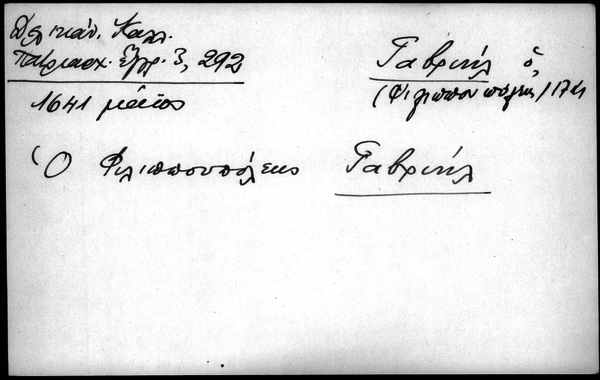 Δελικάν. Καλλ.
Πατριαρχ. έγγρ. 3, 292
1641 μάϊος
Γαβριήλ ὁ,
(Φιλιππουπόλεως) 17
Ὁ Φιλιππουπόλεως Γαβριήλ